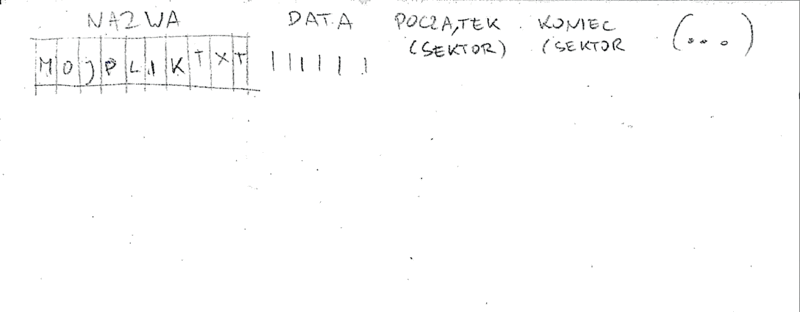 NAZWA DATA POCZĄTEK KONIEC (...)
(SEKTOR) (SEKTOR
MOJPLIKTXT